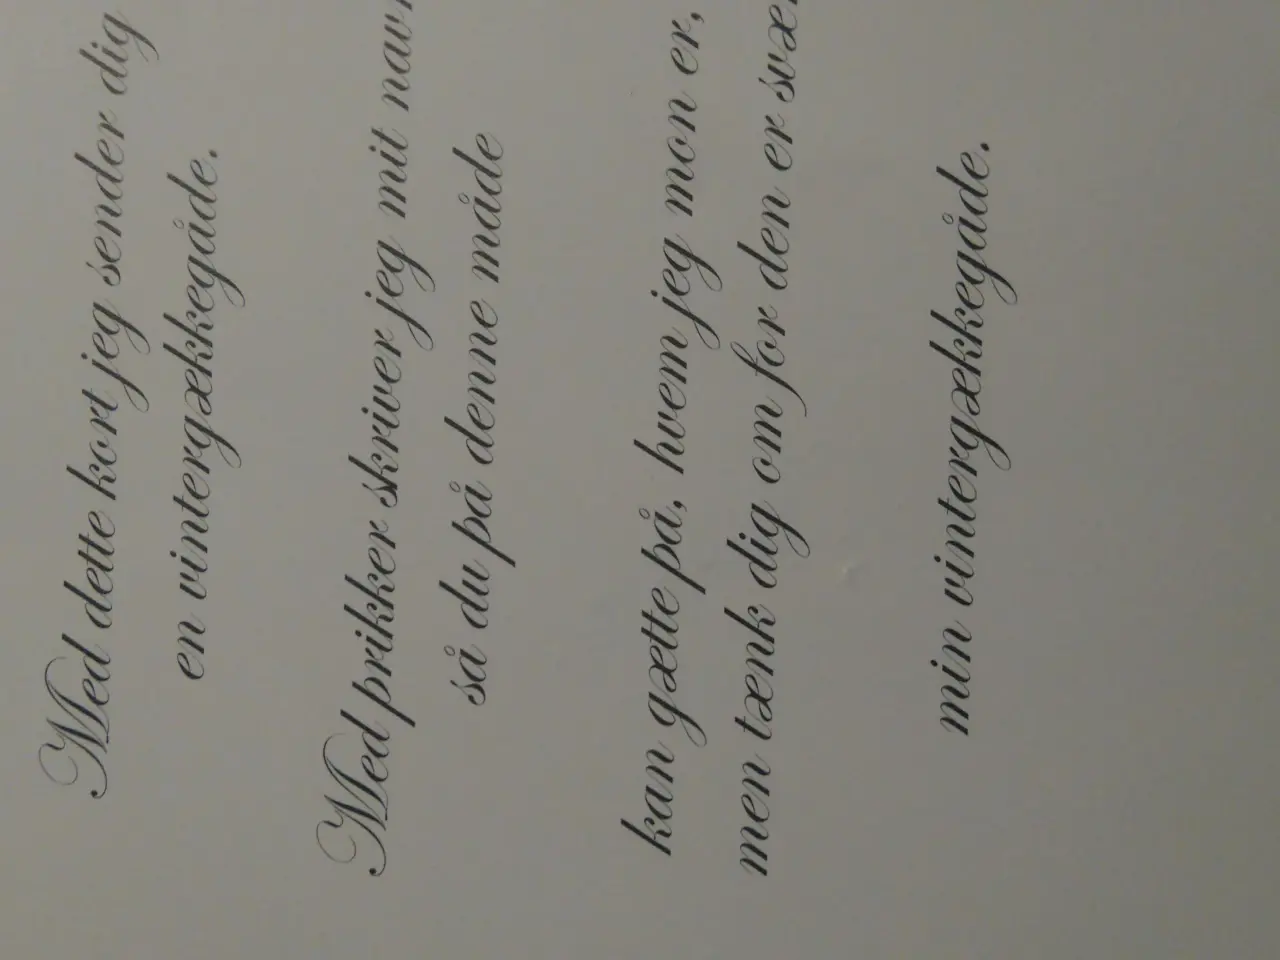 Med dette kort jeg sender dig
en vintergækkegåde.
Med prikker skriver jeg mit
så du på denne måde
kan gætte på, hvem jeg mon er,
men tænk dig om for den er
min vintergækkegåde.